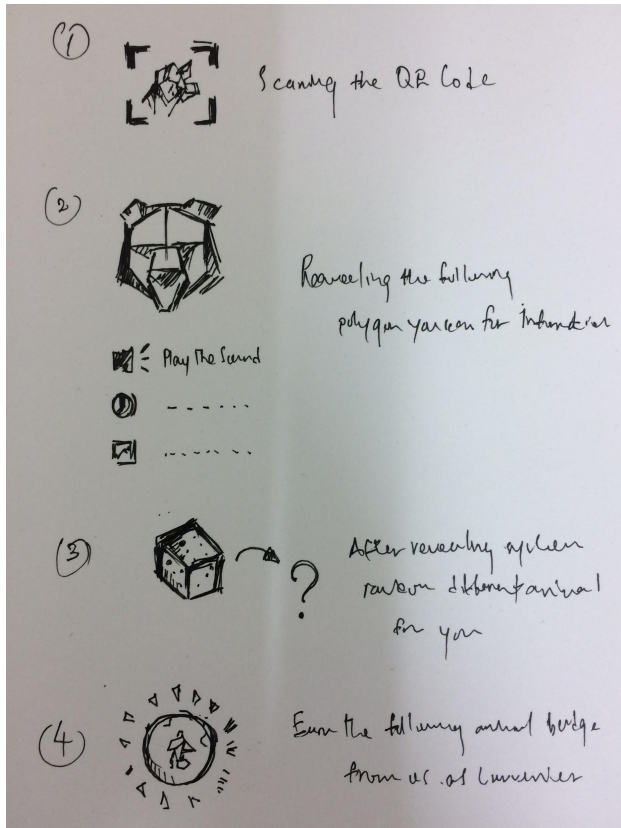 (1)
Scaning the QR Code
(2)
Revealing the following
polygon you can for
Play The Sound
(3)
After revealing system
random different animal
for you
(4)
Earn the following animal badge
from us as